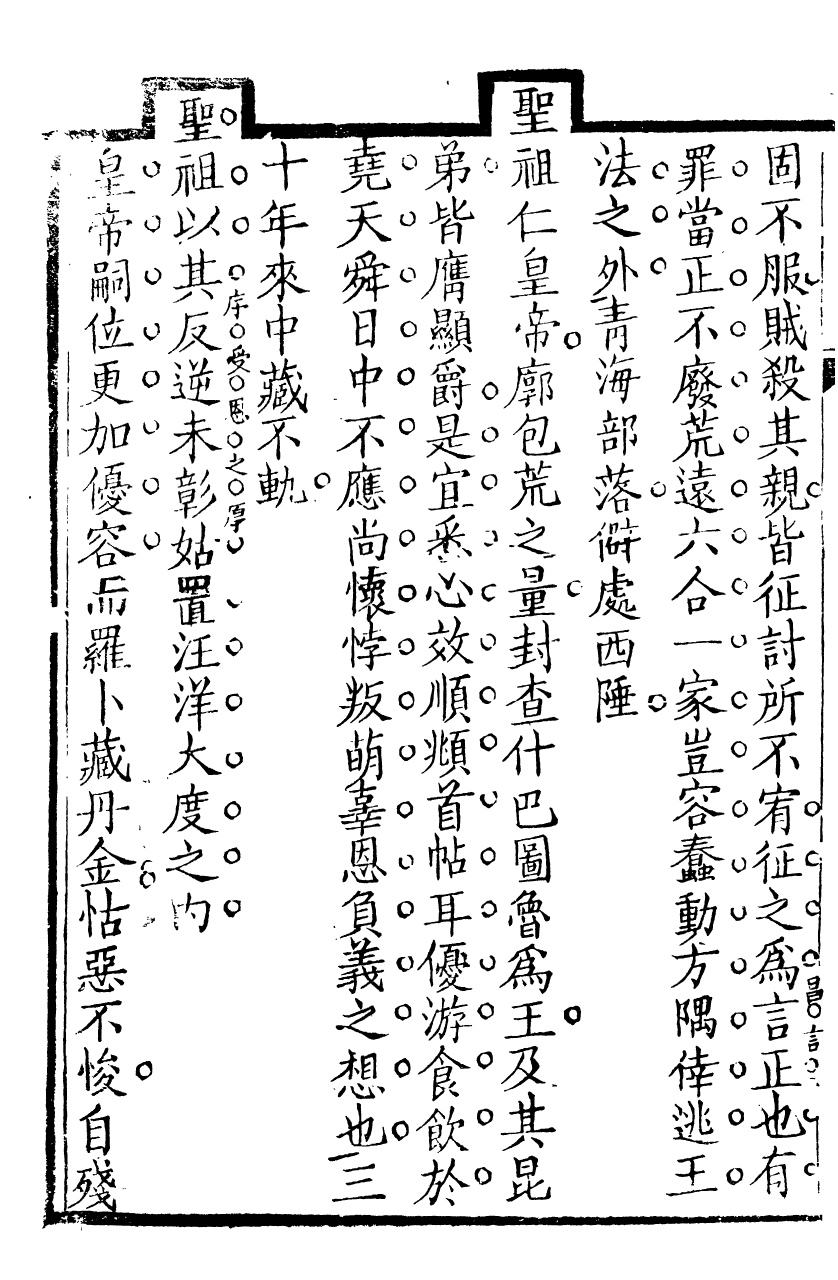 固不服賊殺其親皆征討所不宥征之為言正也有
昌言
罪當正不廢荒遠六合一家豈容蠢動方隅倖逃王
法之外青海部落僻處西陲
聖祖仁皇帝廓包荒之量封查什巴圖魯為王及其昆
弟皆膺顯爵是宜悉心效順頫首帖耳優游食飲於
堯天舜日中不應尚懷悖叛萌辜恩負義之想也三
十年來中藏不軌
序受恩之厚
聖祖以其反逆未彰姑置汪洋大度之內
皇帝嗣位更加優容而羅卜藏丹金怙惡不悛自殘